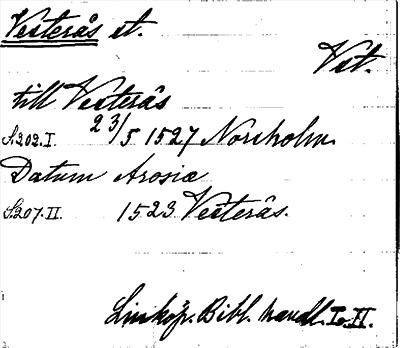 Vesterås st.
Vst.
till Vesterås
S.202.I. 23/5 1527 Norsholm.
Datum Arosiæ
S.207.II. 1523 Vesterås.
Linköp. Bibl. handl. I o. II.